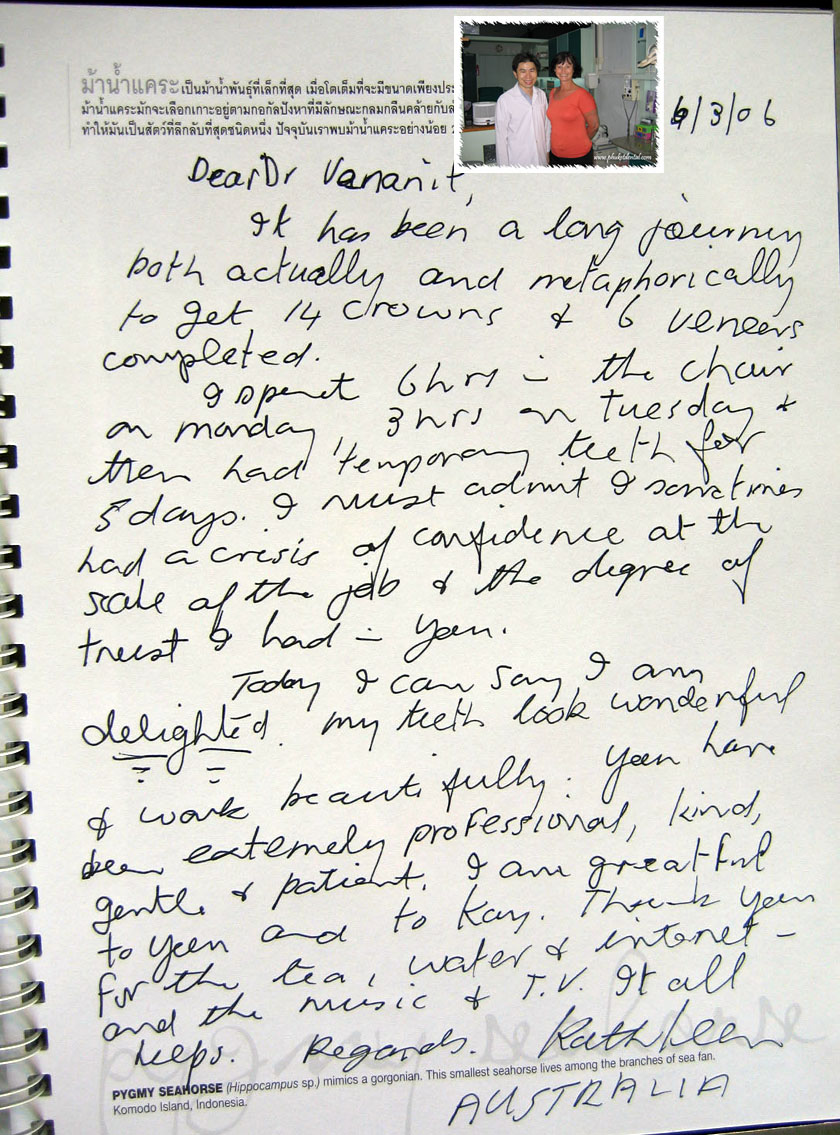 ม้าน้ำแคระเป็นม้าน้ำพันธุ์ที่เล็กที่สุด เมื่อโตเต็มที่จะมีขนาดเพียงประ
ม้าน้ำแคระมักจะเลือกเกาะอยู่ตามกอกัลปังหาที่มีลักษณะกลมกลืนคล้ายกับ
ทำให้มันเป็นสัตว์ที่ลึกลับที่สุดชนิดหนึ่ง ปัจจุบันเราพบม้าน้ำแคระอย่างน้อย
www.phuketdental.com
6/3/06
Dear Dr Vananit,
It has been a long journey
both actually and metaphorically
to get 14 crowns & 6 veneers
completed.
I spent 6hrs in the chair
on monday 3hrs on Tuesday &
then had temporary teeth for
5 days. I must admit I sometimes
had a crisis of confidence at the
scale of the job & the degree of
trust I had in you.
Today I can say I am
delighted. my teeth look wonderful
& work beautifully. You have
been extemely professional, kind,
gentle & patient. I am greatful
to you and to Kay. Thank you
for the tea, water & internet -
and the music & T.V. It all
helps. Regards. Kathleen
AUSTRALIA
pygmy seahorse
PYGMY SEAHORSE (Hippocampus sp.) mimics a gorgonian. This smallest seahorse lives among the branches of sea fan.
Komodo Island, Indonesia.